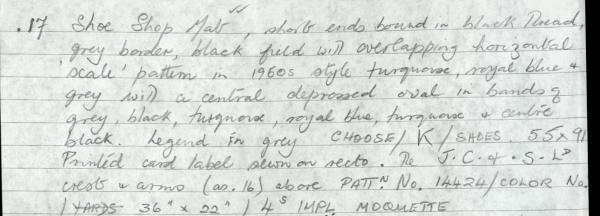 .17 Shoe Shop Mat, short ends bound in black thread,
grey border, black field with overlapping horizontal
'scale' pattern in 1960s style turquoise, royal blue +
grey with a central depressed oval in bands of
grey, black, turquoise, royal blue, turquoise + centre
black. Legend in grey CHOOSE/K/SHOES 55x91
Printed card label sewn on recto. The J.C.+.S.Ld
crest + arms (as .16) above PATTN No. 14424/COLOR No.
/YARDS 36" x 22" / 4S IMPL MOQUETTE